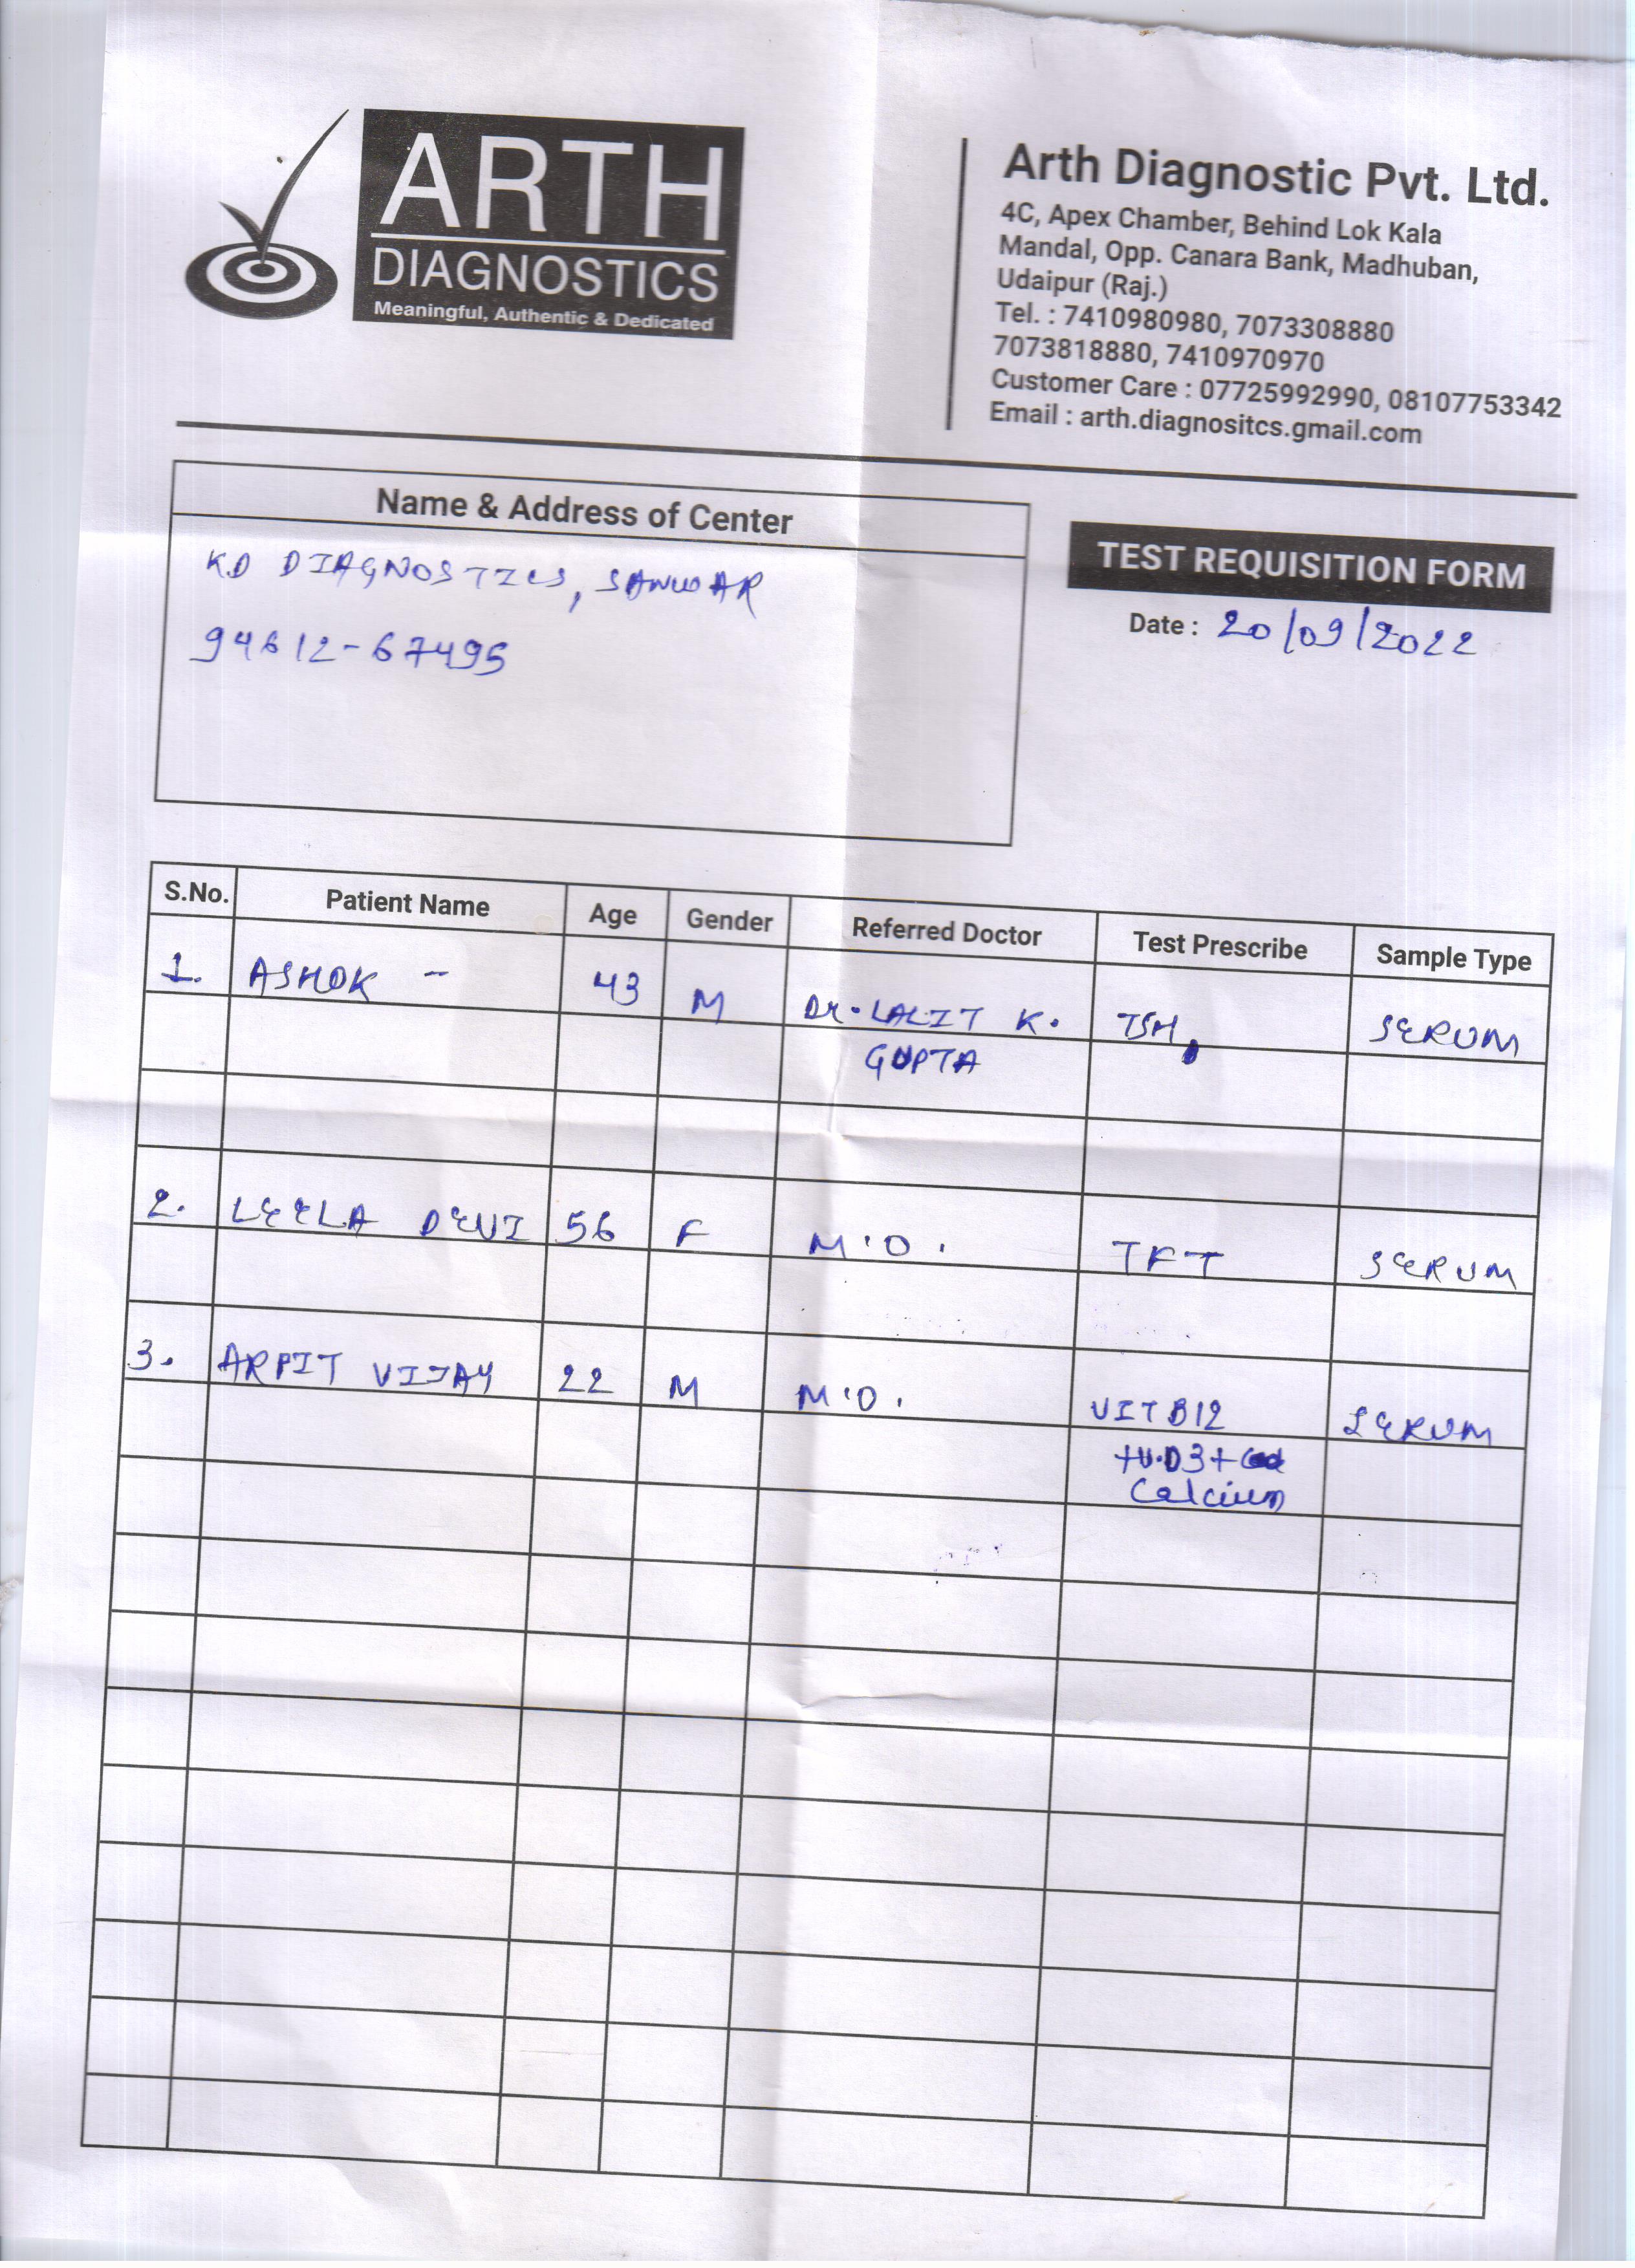 ARTH
DIAGNOSTICS
Meaningful, Authentic & Dedicated
Arth Diagnostic Pvt. Ltd.
4C, Apex Chamber, Behind Lok Kala
Mandal, Opp. Canara Bank, Madhuban,
Udaipur (Raj.)
Tel. : 7410980980, 7073308880
7073818880, 7410970970
Customer Care : 07725992990, 08107753342
Email : arth.diagnositcs.gmail.com
Name & Address of Center
KD DIAGNOSTICS, SANWAR
94612-67495
TEST REQUISITION FORM
Date : 20/09/2022
S.No. Patient Name Age Gender Referred Doctor Test Prescribe Sample Type
1. ASHOK - 43 M Dr. LALIT K. TSH, SERUM
GUPTA
2. LEELA DEVI 56 F M.O. TFT SERUM
3. ARPIT VIJAY 22 M M.O. VIT B12 SERUM
+V.D3+
Calcium